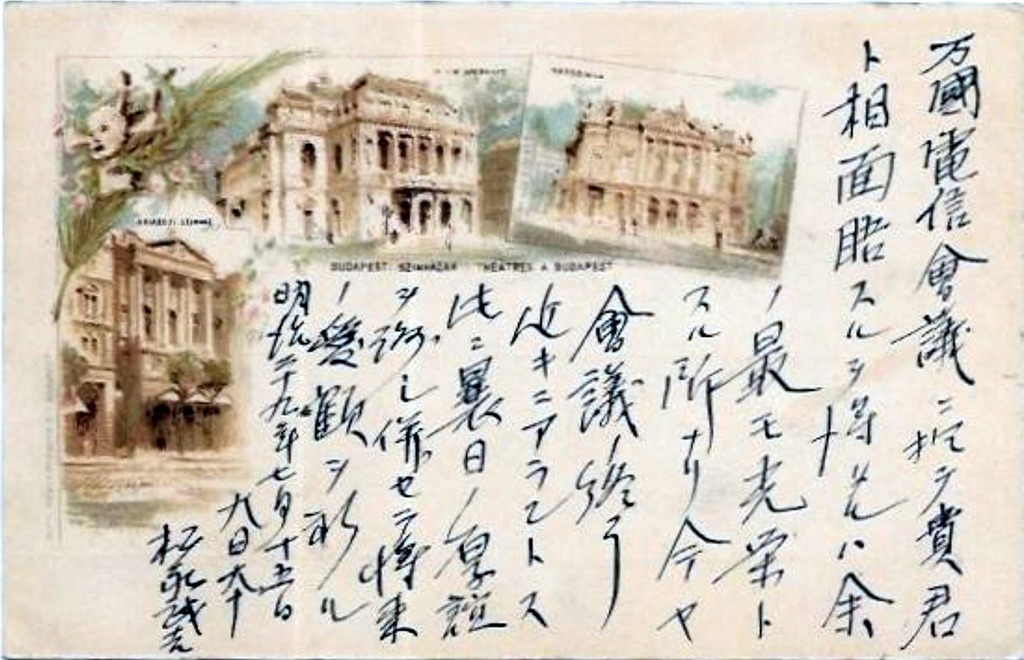 BUDAPESTI SZINHÁZAK THÉATRES A BUDAPEST
万國電信會議ニ於テ貴君
ト相面晤スルヲ得タルハ余
ノ最モ光栄ト
スル所ナリ今ヤ
會議ノ終リ
近キニアラントス
此ニ曩日ノ厚誼
ヲ謝シ併セテ将来
ノ愛顧ヲ祈ル
明治二十九年七月十 日